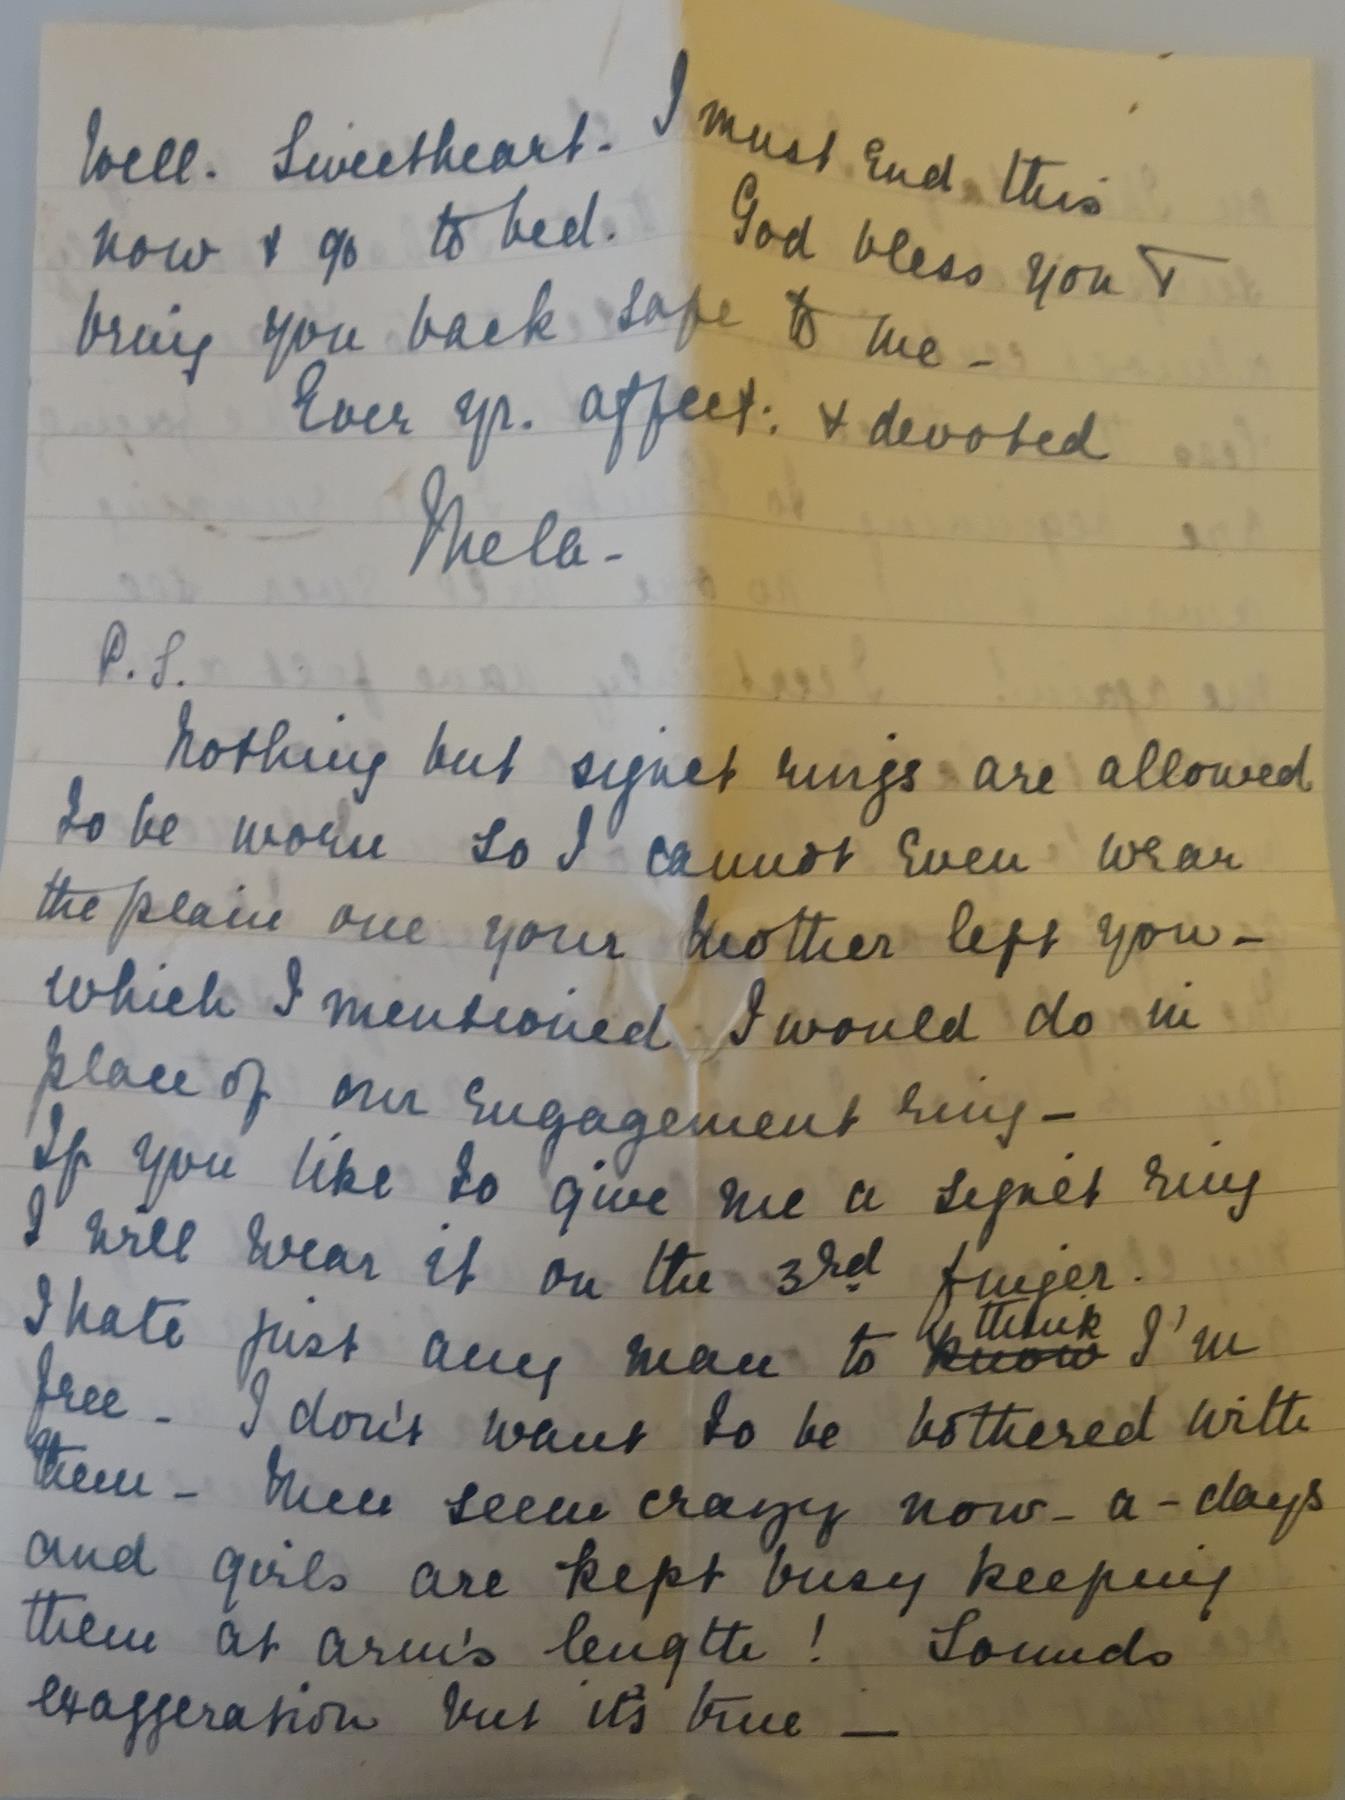 Well. Sweetheart. I must end this
now & go to bed. God bless you &
bring you back safe to me -
Ever yr. affect: & devoted
Mela -
P.S.
Nothing but signet rings are allowed
to be worn so I cannot even wear
the plain one your Mother left you -
which I mentioned I would do in
place of our engagement ring -
If you like to give me a signet ring
I will wear it on the 3rd finger.
I hate just any man to know think I'm
free - I don't want to be bothered with
them - Men seem crazy now - a - days
and girls are kept busy keeping
them at arm's length! Sounds
exaggeration but it's true -